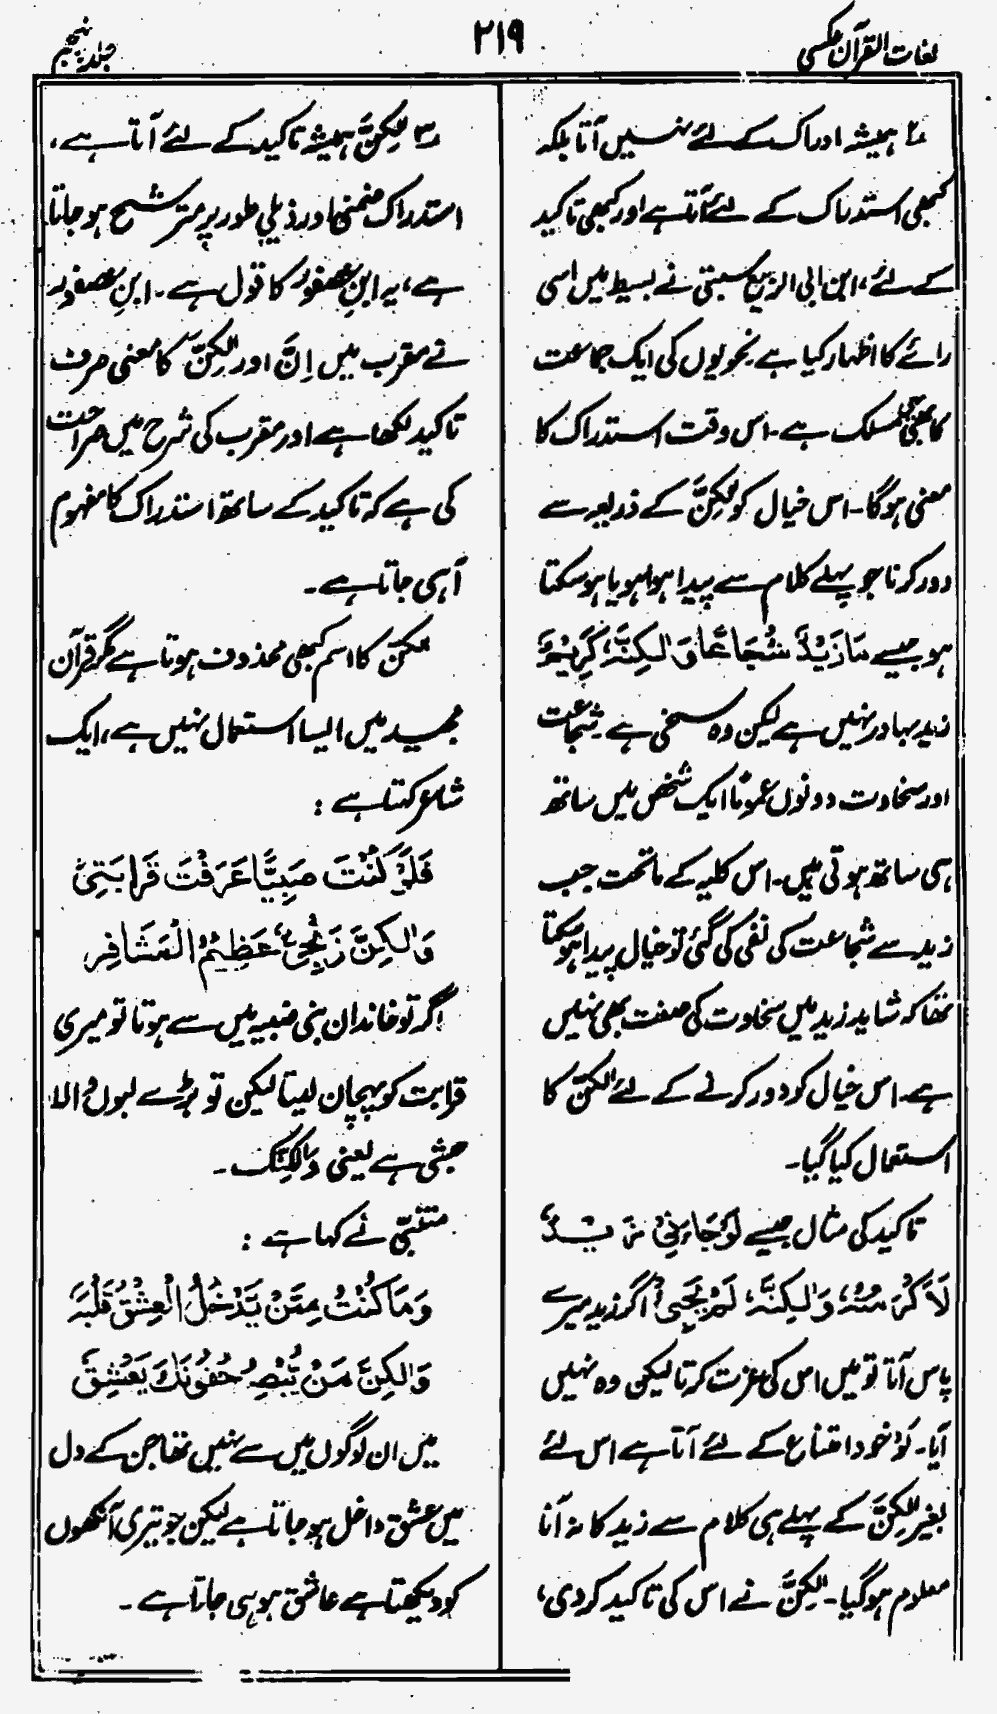 لغات القرآن عکسی
۲۱۹
جلد پنجم
۲؎ ہمیشہ ادراک کے لئے نہیں آتا بلکہ
کبھی استدراک کے لئے آتا ہے اور کبھی تاکید
کے لئے، ابن ابی الربیع سبتی نے بسیط میں اسی
رائے کا اظہار کیا ہے نحویوں کی ایک جماعت
کا بھی یہی مسلک ہے۔ اس وقت استدراک کا
معنی ہوگا۔ اس خیال کو لٰکِنَّ کے ذریعہ سے
دور کرنا جو پہلے کلام سے پیدا ہوا ہو یا ہو سکتا
ہو جیسے مَا زَیْدٌ شُجَاعًا وَلٰکِنَّہٗ کَرِیْمٌ
زید بہادر نہیں ہے لیکن وہ سخی ہے شجاعت
اور سخاوت دونوں عموماً ایک شخص میں ساتھ
ہی ساتھ ہوتی ہیں۔ اس کلیہ کے ماتحت جب
زید سے شجاعت کی نفی کی گئی تو خیال پیدا ہو سکتا
تھا کہ شاید زید میں سخاوت کی صفت بھی نہیں
ہے۔ اس خیال کو دور کرنے کے لئے لٰکِنَّ کا
استعمال کیا گیا۔
تاکید کی مثال جیسے لَوْ جَاءَنِیْ زَیْدٌ
لَاَکْرَمْتُہٗ وَلٰکِنَّہٗ لَمْ یَجِیْٔ اگر زید میرے
پاس آتا تو میں اس کی عزت کرتا لیکن وہ نہیں
آیا۔ لَوْ خود امتناع کے لئے آتا ہے اس لئے
بغیر لٰکِنَّ کے پہلے ہی کلام سے زید کا نہ آنا
معلوم ہوگیا۔ لٰکِنَّ نے اس کی تاکید کردی،
۳؎ لٰکِنَّ ہمیشہ تاکید کے لئے آتا ہے،
استدراک ضمنی اور ذیلی طور پر مترشح ہو جاتا
ہے، یہ ابنِ عصفور کا قول ہے۔ ابنِ عصفور
نے مقرب میں اِنَّ اور لٰکِنَّ کا معنی صرف
تاکید لکھا ہے اور مقرب کی شرح میں صراحت
کی ہے کہ تاکید کے ساتھ استدراک کا مفہوم
آ ہی جاتا ہے۔
لٰکِنَّ کا اسم کبھی محذوف ہوتا ہے مگر قرآن
مجید میں ایسا استعمال نہیں ہے، ایک
شاعر کہتا ہے :
فَلَوْ کُنْتَ ضَبِیًّا عَرَفْتَ قَرَابَتِیْ
وَلٰکِنَّ زَنْجِیٌّ عَظِیْمُ الْمَشَافِرِ
اگر تو خاندان بنی ضبیہ میں سے ہوتا تو میری
قرابت کو پہچان لیتا لیکن تو بڑے لبوں والا
حبشی ہے یعنی وَلٰکِنَّکَ۔
متنبّی نے کہا ہے :
وَمَا کُنْتُ مِمَّنْ یَّدْخُلُ الْعِشْقُ قَلْبَہٗ
وَلٰکِنَّ مَنْ یُّبْصِرْ جُفُوْنَکَ یَعْشِقٖ
میں ان لوگوں میں سے نہیں تھا جن کے دل
میں عشق داخل ہو جاتا ہے لیکن جو تیری آنکھوں
کو دیکھتا ہے عاشق ہو ہی جاتا ہے۔